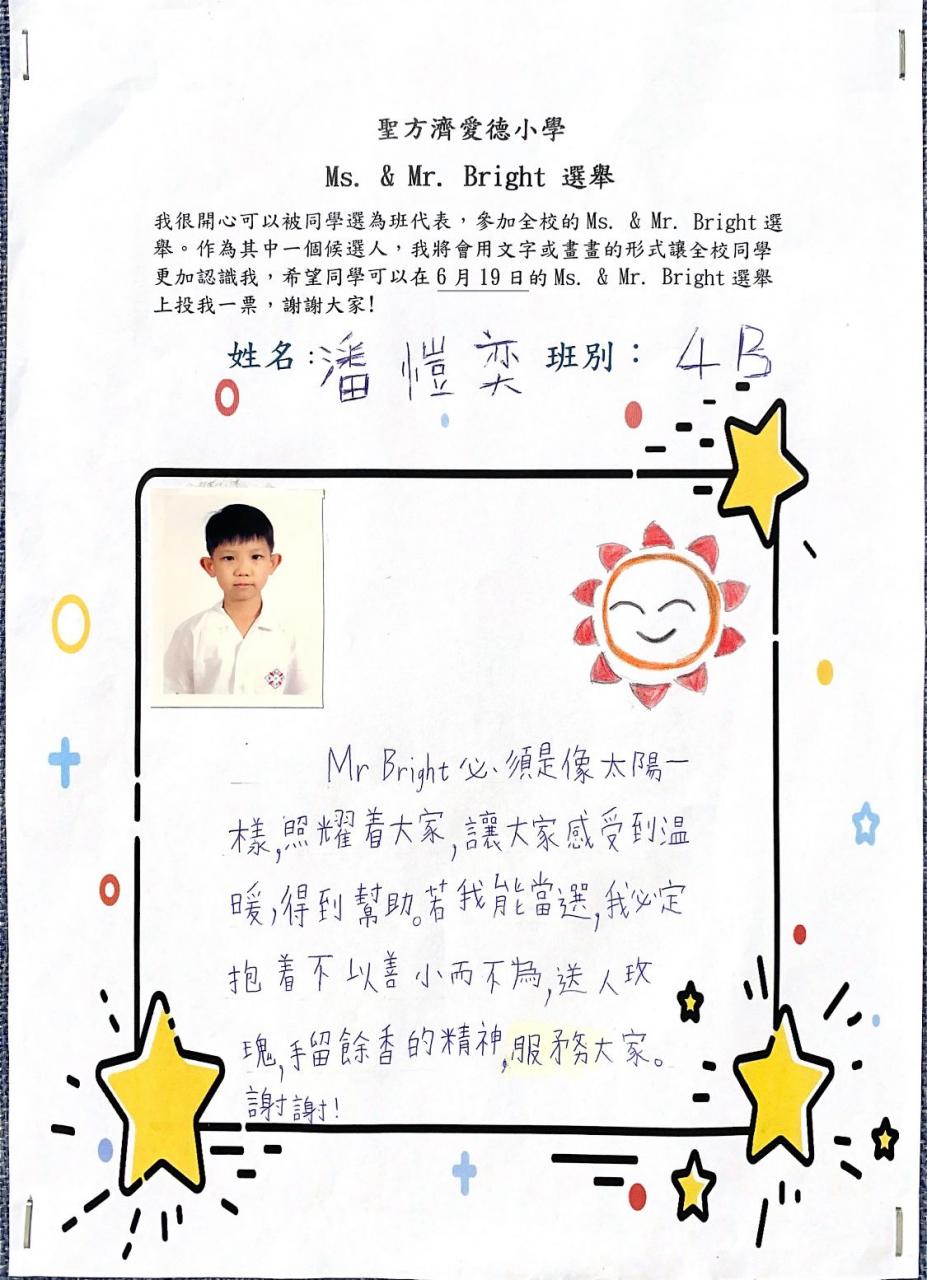 聖方濟愛德小學
Ms. & Mr. Bright 選舉
我很開心可以被同學選為班代表，參加全校的Ms. & Mr. Bright選
舉。作為其中一個候選人，我將會用文字或畫畫的形式讓全校同學
更加認識我，希望同學可以在6月19日的Ms. & Mr. Bright選舉
上投我一票，謝謝大家!
姓名:潘愷奕 班別：4B
Mr Bright必須是像太陽一
樣,照耀着大家,讓大家感受到溫
暖,得到幫助。若我能當選,我必定
抱着不以善小而不為,送人玫
瑰,手留餘香的精神,服務大家。
謝謝!